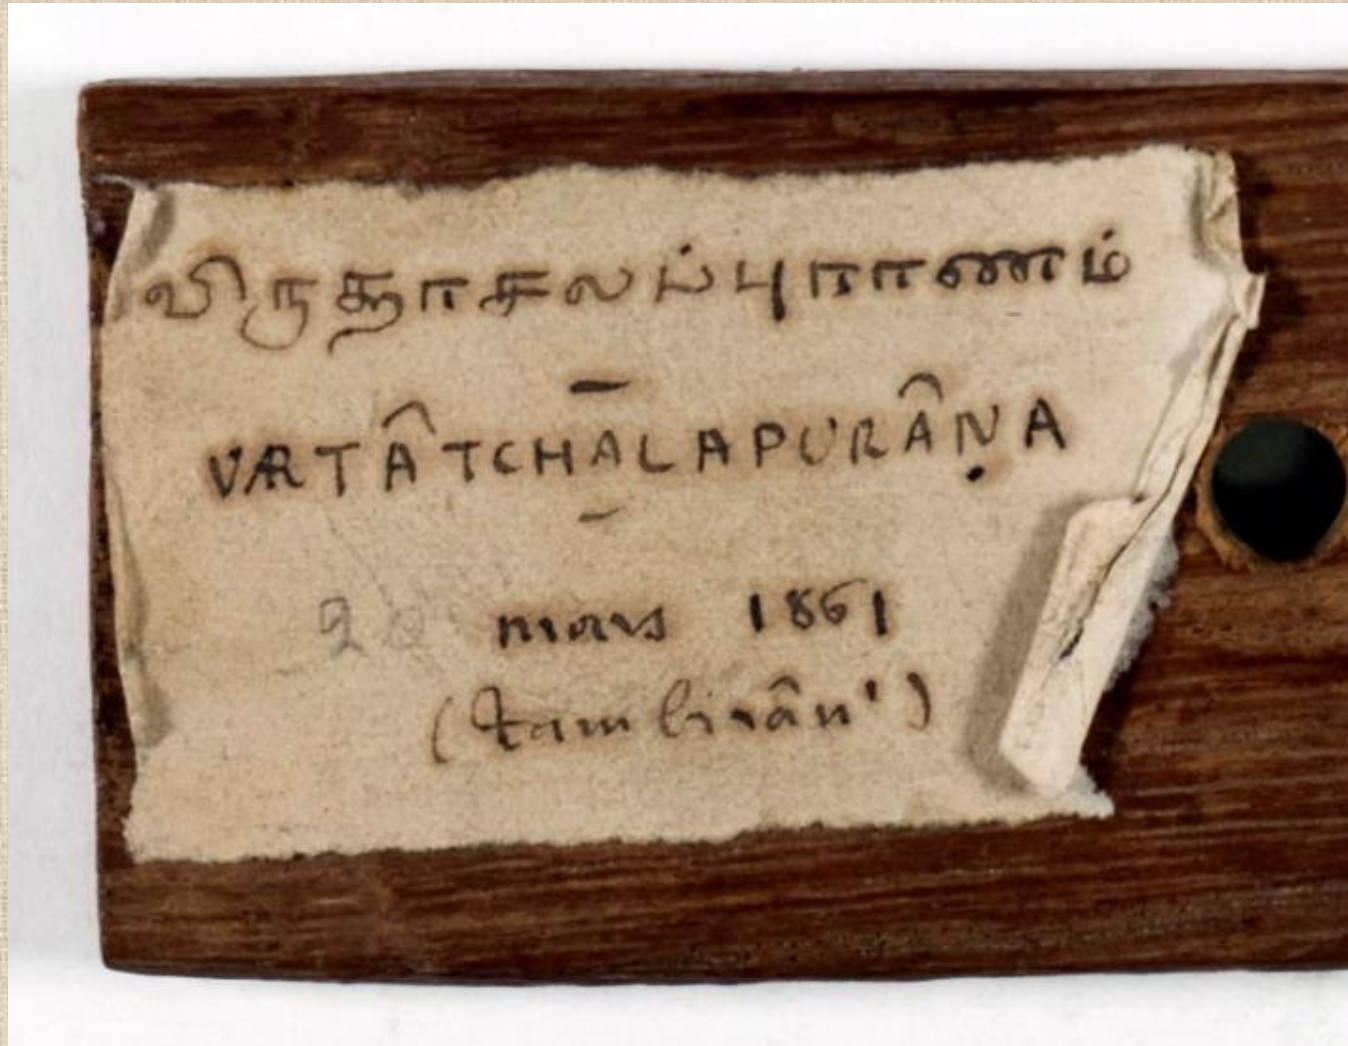 விருத்தாசலப்புராணம்
VRTÂTCHALAPURÂṆA
20 mars 1861
(tambirân')